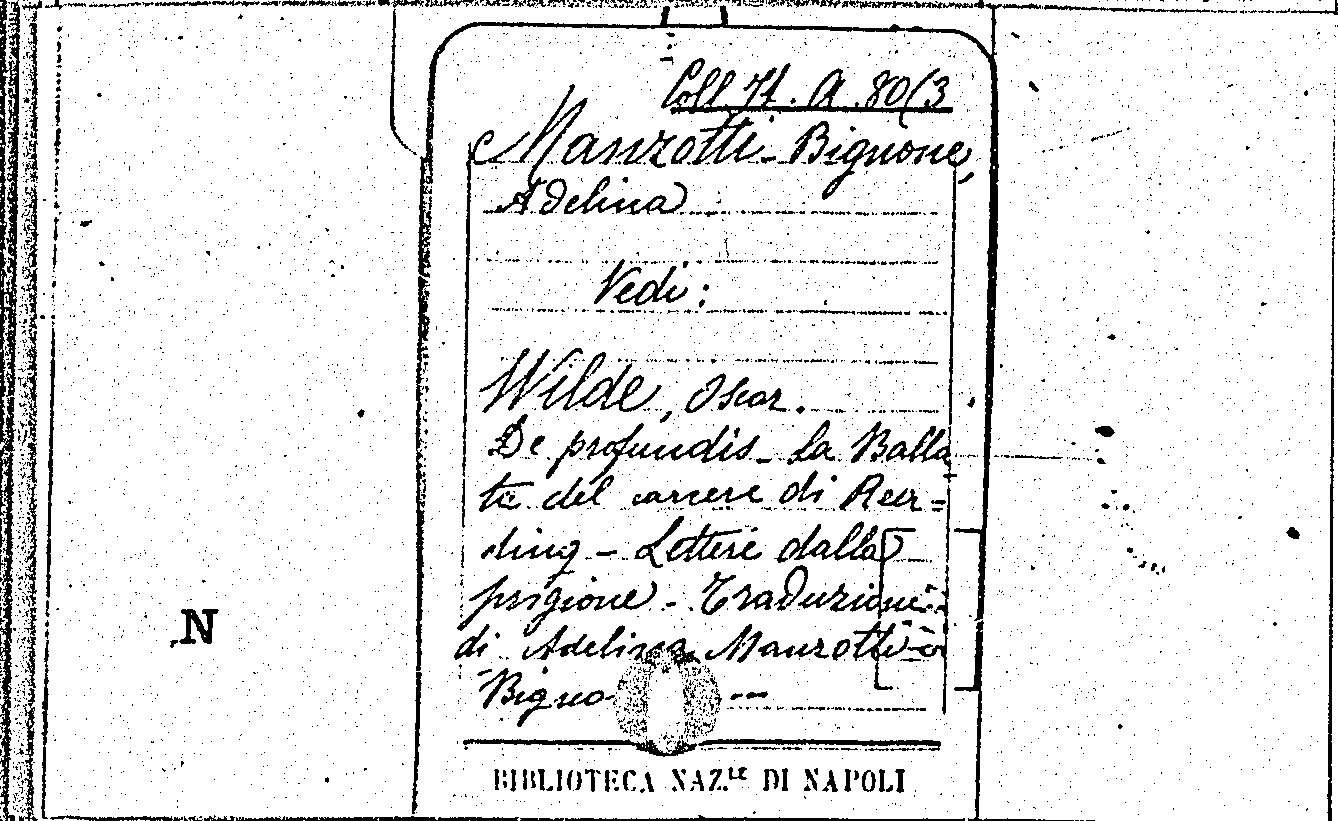 Coll 71. A. 80(3
Manzotti-Bignone,
Adelina
Vedi:
Wilde, Oscar.
De profundis - La Balla
ta del carcere di Rea=
ding - Lettere dalla
prigione - Traduzione
di Adelina Manzotti
Bigno
N
BIBLIOTECA NAZ.LE DI NAPOLI